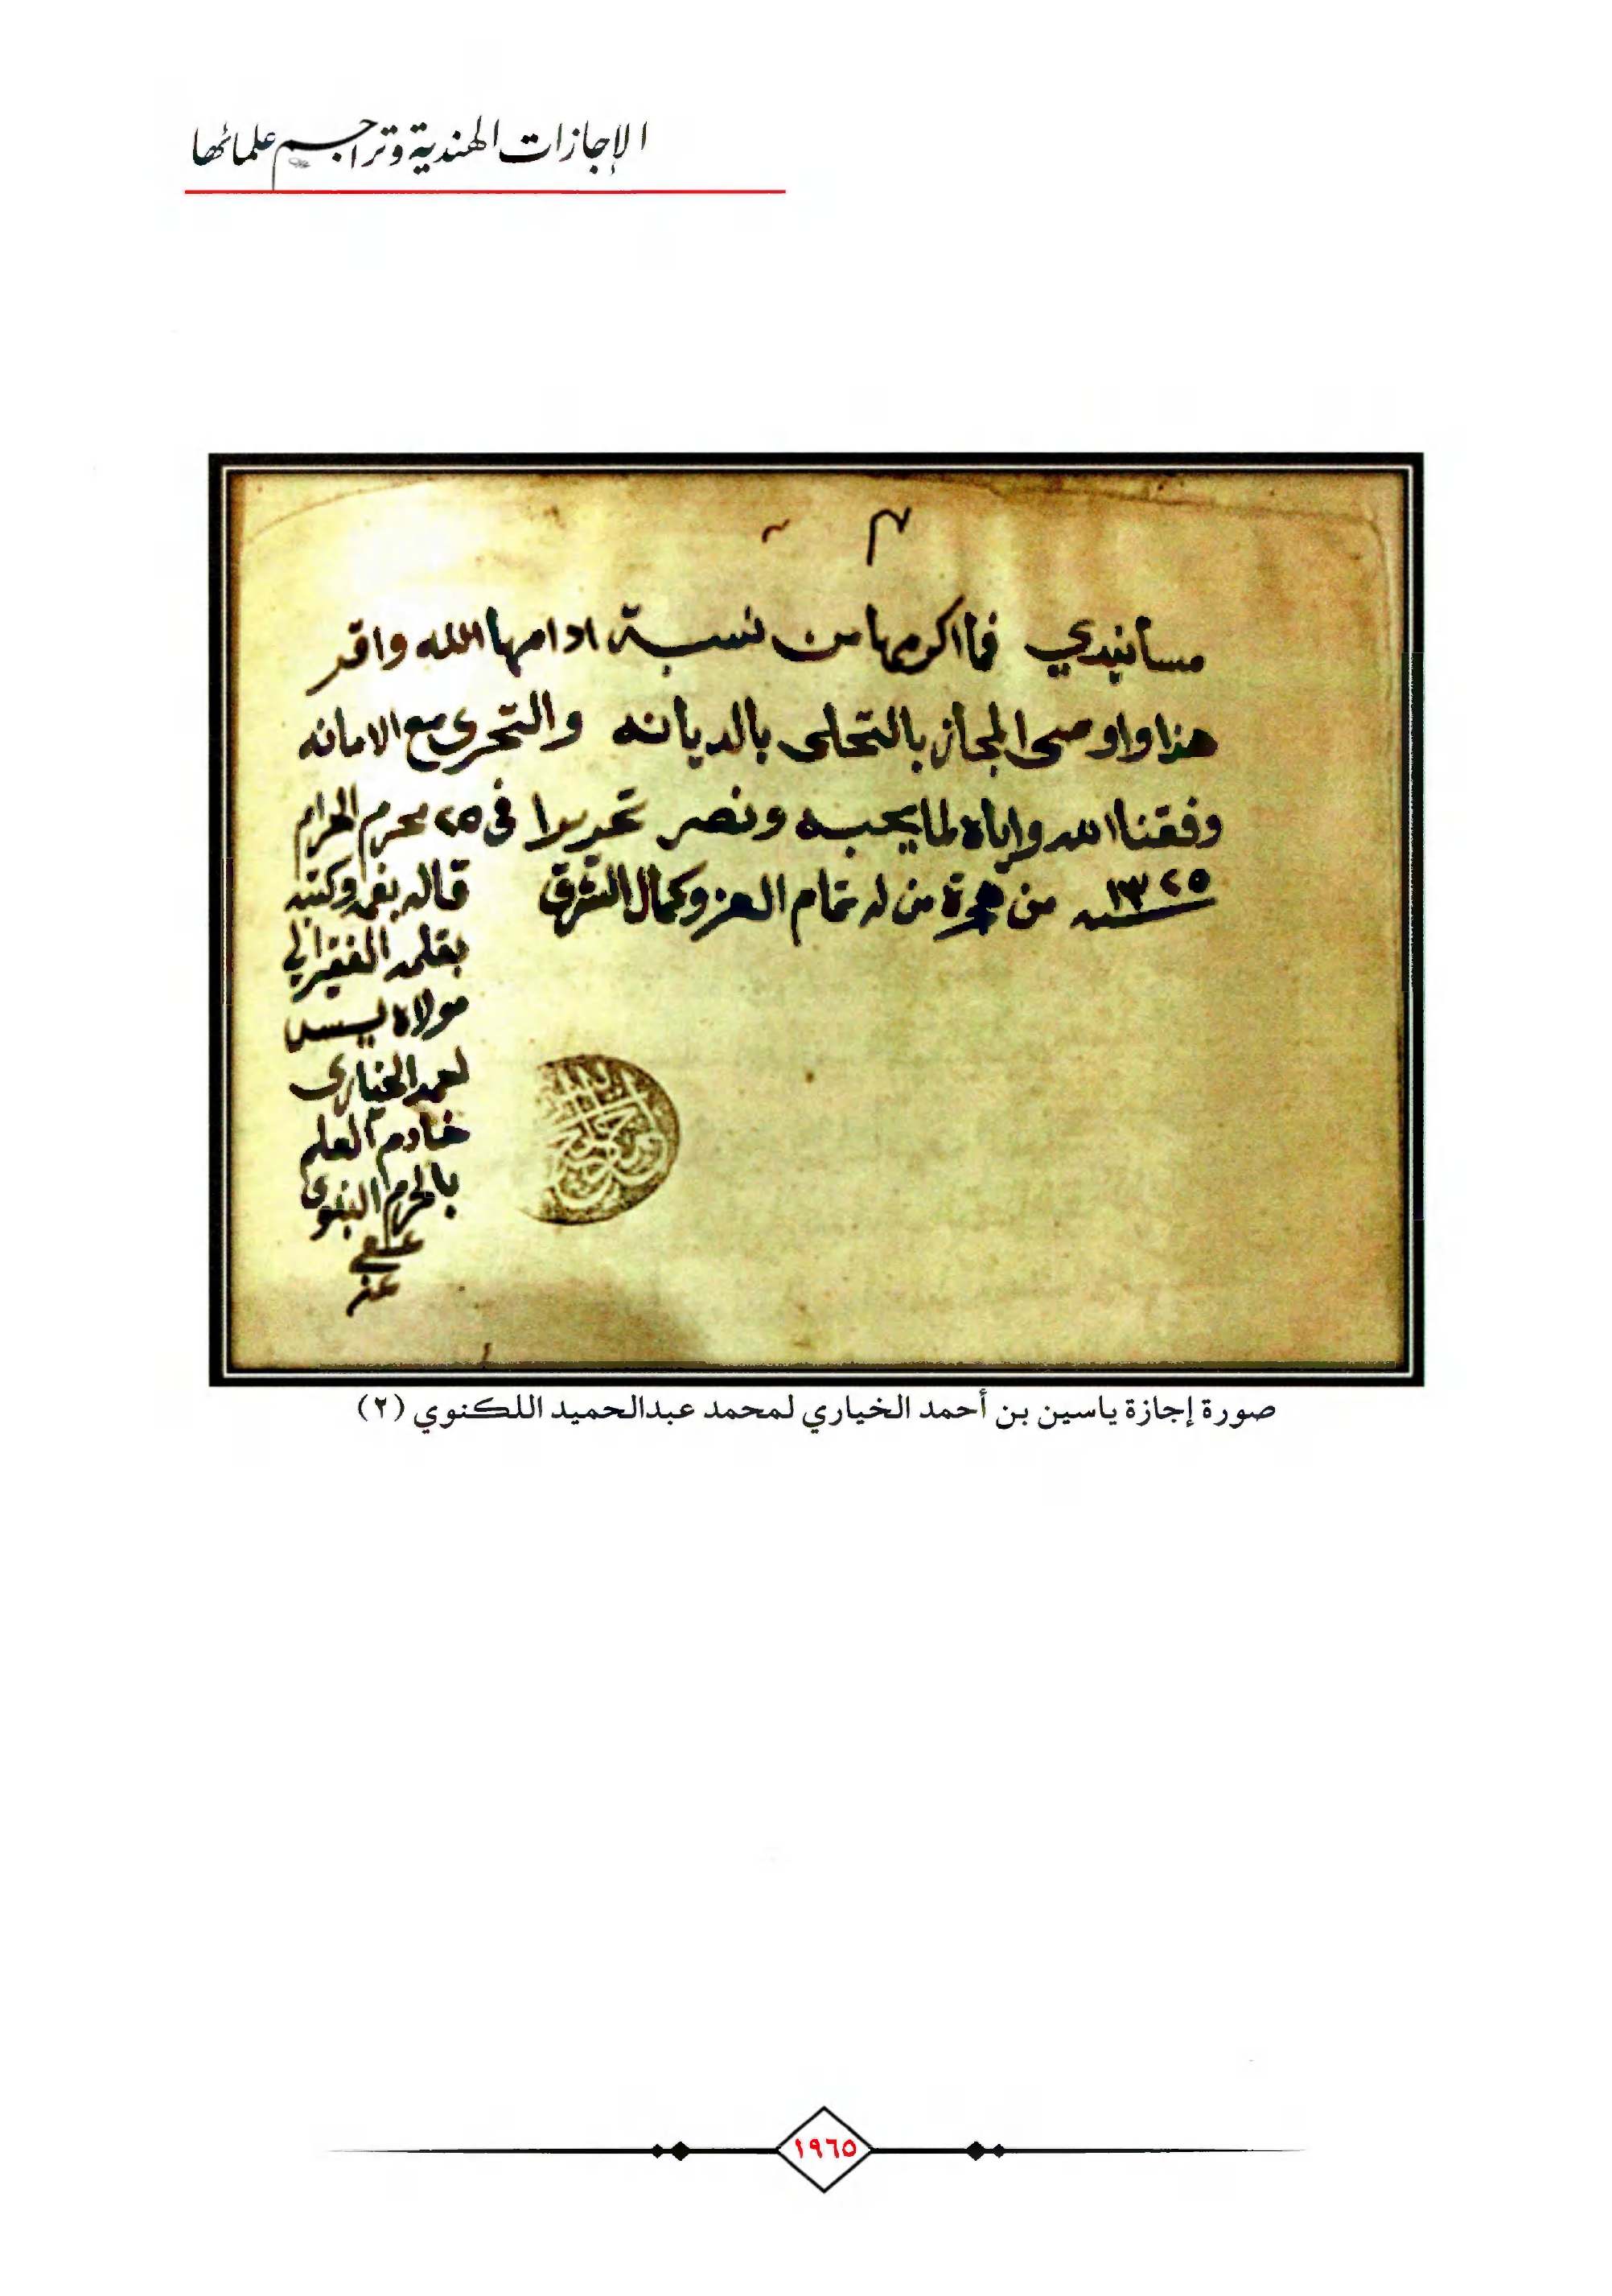 الإجازات الهندية وتراجم علمائها
مسانيدي فما اكرمها من نسبة ادامها الله واقر
هذا واوصى المجاز بالتحلى بالديانه والتحرى مع الامانه
وفقنا الله واياه لما يحبه ونصر تحريرا فى ٢٥ محرم الحرام
سنه ١٣٢٥ من هجرة من له تمام العز وكمال الشرف
قاله بفمه وكتبه
بقلمه الفقير الي
مولاه يسن
احمد الخيارى
خادم العلم
بالحرم النبوى
عفي
عنه
صورة إجازة ياسين بن أحمد الخياري لمحمد عبدالحميد اللكنوي (٢)
١٩٦٥